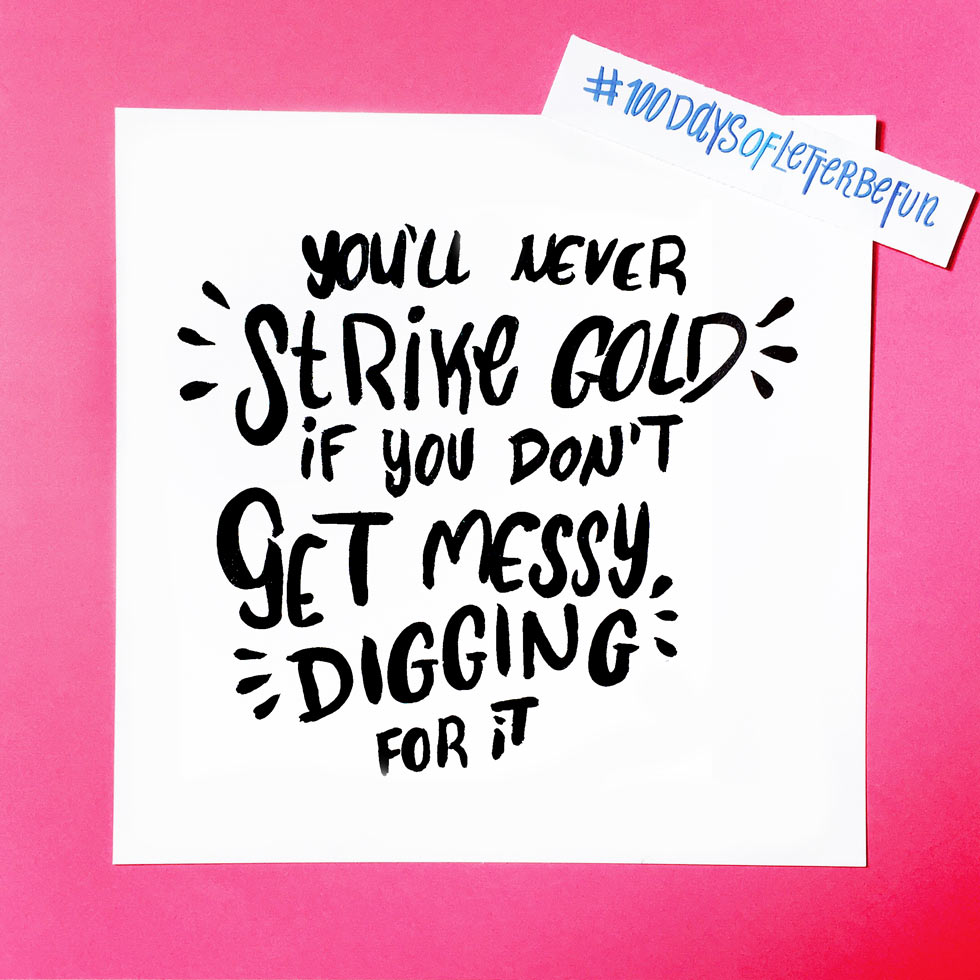 #100DaysOfLetterBeFun
YOU'LL NEVER
STRIKE GOLD
iF YOU DON'T
GET MESSY
DIGGING
FOR iT